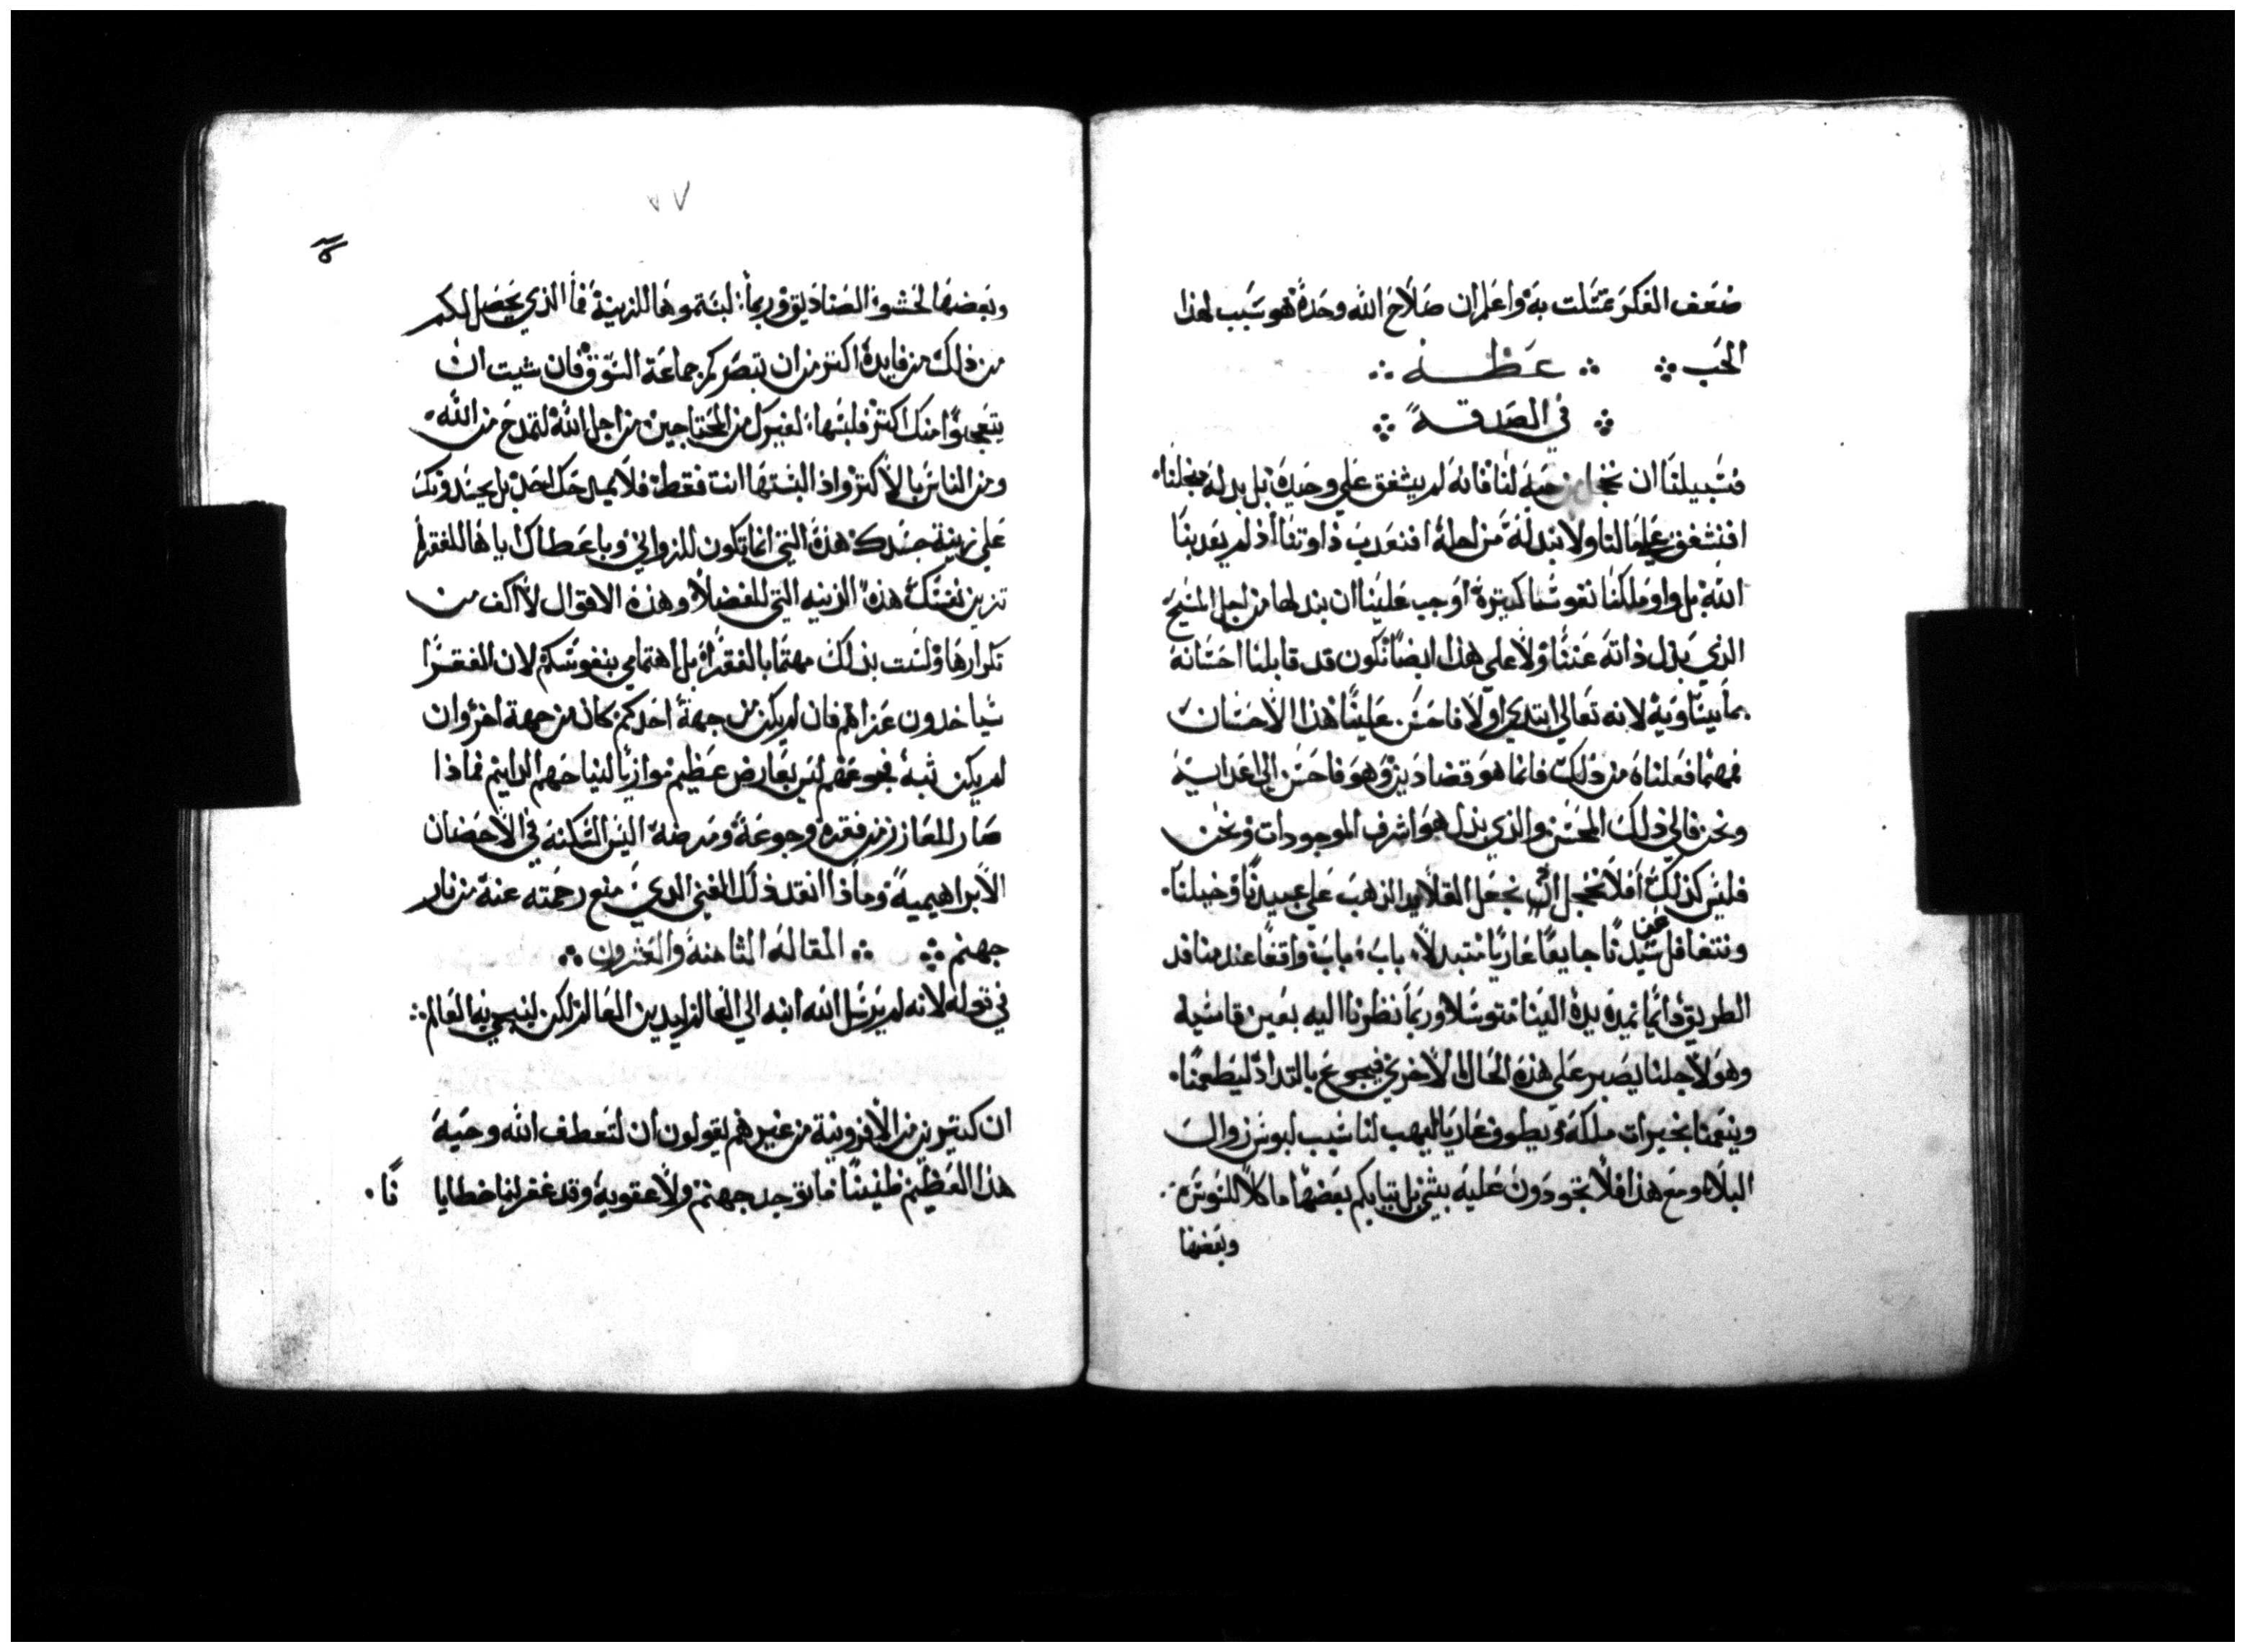 ضعف الفكر تمتلت به واعلم ان صلاح الله وحده هو سبب لهذا
الحب ✣ ∴ عظة ∴
∴ في الصدقة ∴
فسبيلنا ان نخجل من حبه لنا فانه لم يشفق علي وحيده بل بدله منجلنا
افنشفق علي مالنا ولا نبدله من اجله افنعدب داوتنا اذ لم يعدبنا
الله بل ولو ملكنا نفوسًا كتيرة اوجب علينا ان نبدلها من اجل المسيح
الذي بدل ذاته عننا ولا علي هذا ايضًا نكون قد قابلنا احسانه
بما يساويه لانه تعالي ابتدي اولا فاحسن علينا هذا الاحسان
فمهما فعلناه من ذلك فانما هو قضا دين وهو فاحسن الي اعدايه
ونحن فالي ذلك المحسن والذي بدل هو اشرف الموجودات ونحن
فليس كذلك افلا نخجل ان نجعل القلايد الذهب علي عبيدنا وخيلنا
ونتغافل عن سيدنا جايعًا عاريًا متبدلاً باب باب واقفًا عند منافد
الطريق دايمًا تمده يده الينا متوسلا وربما نظرنا اليه بعين قاسيه
وهو لاجلنا يصبر علي هذه الحال الاخري فيجوع بالتداد ليطعمنا
وينعمنا بخيرات ملكه ويطوف عاريا ليهب لنا سبب لبوس زوال
البلاء ومع هذا فلا تجودون عليه بشي بل تيابكم بعضها ماكلا للسوس
وبعضها
٧٧
وبعضها لحشوة الصناديق وربما لبستموها للزينة فما الذي يحصل لكم
من ذلك من فايدة اكتر من ان تبصركم جماعة السوق فان شيت ان
يتعجبوا منك اكتر فلبسها لغيرك من المحتاجين من اجل الله لتمدح من الله
ومن الناس بالاكتر واذ البستها انت فقط فلا يمدحك احد بل يحسدونك
علي زينة جسدك هذه التي انما تكون للزواني وباعطاك اياها للفقرا
تزين نفسك هذه الزينه التي للفضلا وهذه الاقوال لا اكف من
تكرارها ولست بذلك مهتما بالفقرا بل اهتمامي بنفوسكم لان الفقرا
سياخدون عزاهم فان لم يكن من جهة احدكم كان من جهة اخر وان
لم يكن تبه فجوعهم ليس بعارض عظيم موازيا لنياحهم الدايم فماذا
صار للعازر من فقره وجوعه ومرضه اليس السكنه في الاحضان
الابراهيمية وماذا انقد ذلك الغني الذي منع رحمته عنه من نار
جهنم ✣ ∴ المقالة الثامنة والعشرون ∴
في قوله لانه لم يرسل الله ابنه الي العالم ليدين العالم لكن لينجي به العالم
ان كتيرين من الافرونية من غيرهم يقولون ان لتعطف الله وحبه
هذا العظيم فليسا ما توجد جهنم ولا عقوبة وقد غفر لنا خطايا نا